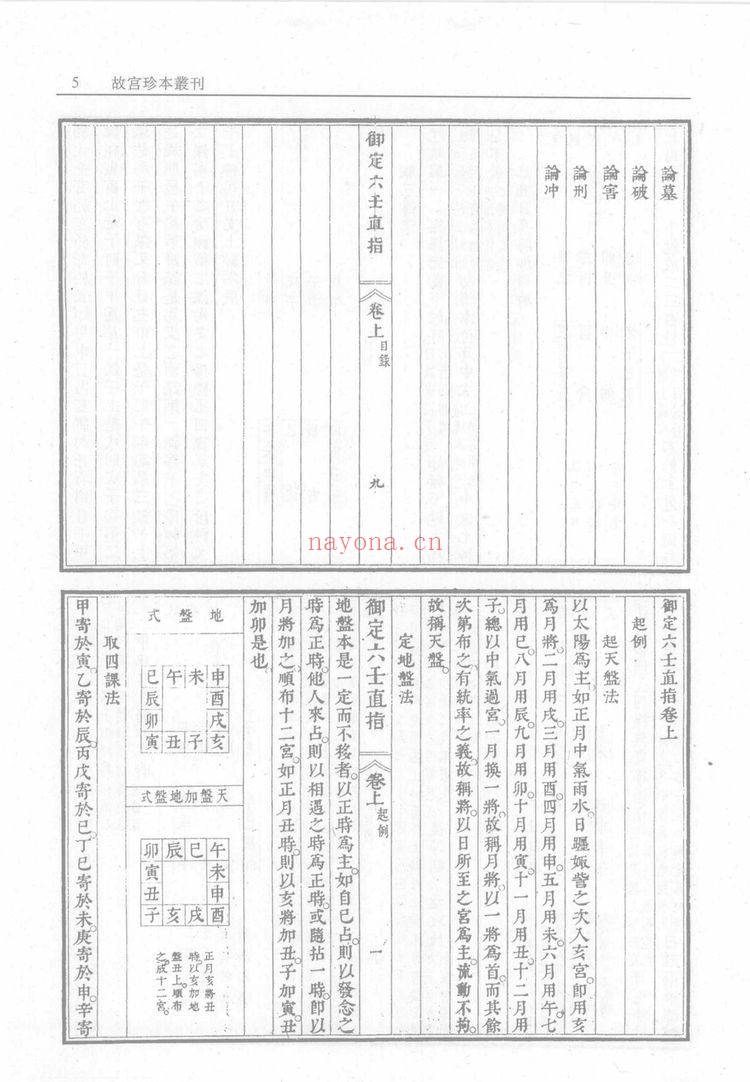 5 故宮珍本叢刊
論墓
論破
論害
論刑
論冲
御定六壬直指 卷上 目錄 九
nayona.cn
御定六壬直指卷上
起例
起天盤法
以太陽爲主。如正月中氣雨水。日躔娵訾之次入亥宮。卽用亥
爲月將。二月用戌。三月用酉。四月用申。五月用未。六月用午。七
月用巳。八月用辰。九月用卯。十月用寅。十一月用丑。十二月用
子。總以中氣過宮。一月換一將。故稱月將。以一將爲首。而其餘
次第布之。有統率之義。故稱將。以日所至之宮爲主。流動不拘。
故稱天盤。
定地盤法
御定六壬直指 卷上 起例 一
地盤本是一定而不移者。以正時爲主。如自己占。則以發念之
時爲正時。他人來占。則以相遇之時爲正時。或隨拈一時。卽以
月將加之。順布十二宮。如正月丑時。則以亥將加丑。子加寅。丑
加卯是也。
地盤式
申未午巳
酉辰
戌卯
亥子丑寅
天盤加地盤式
午巳辰卯
未寅
申丑
酉戌亥子
正月亥將丑
時。以亥加地
盤丑上。順布
之。成十二宮。
取四課法
甲寄於寅。乙寄於辰。丙戊寄於巳。丁己寄於未。庚寄於申。辛寄